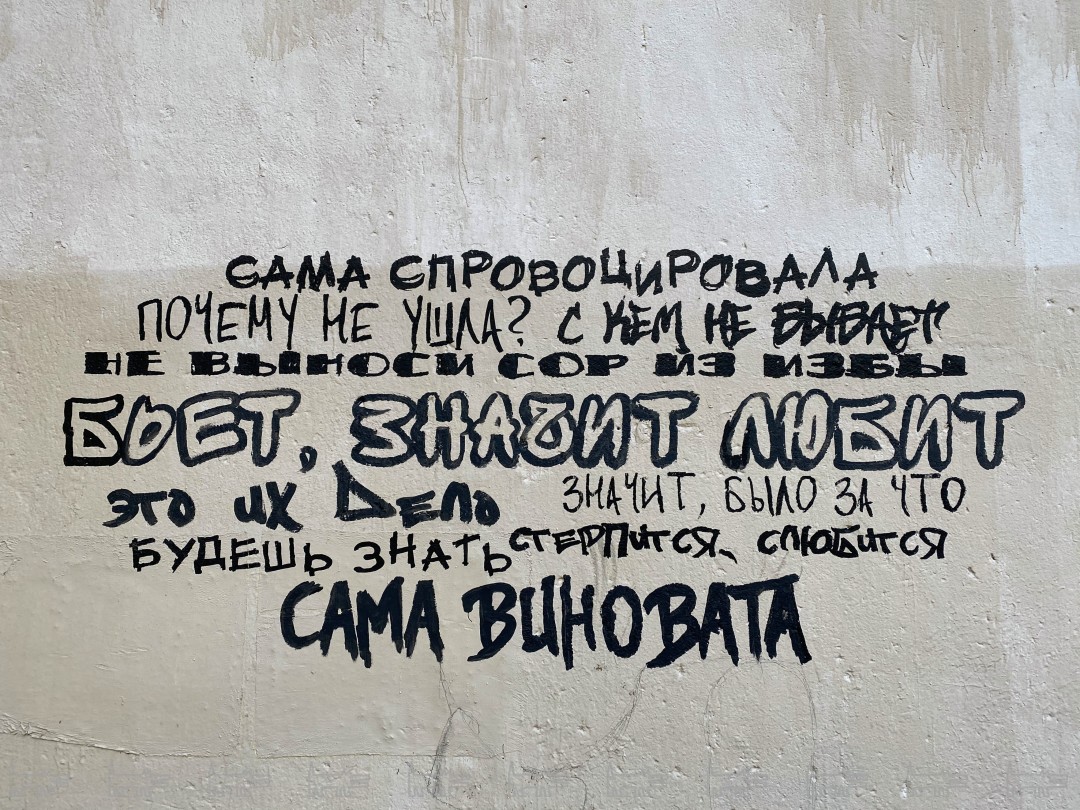 САМА СПРОВОЦИРОВАЛА
ПОЧЕМУ НЕ УШЛА? С КЕМ НЕ БЫВАЕТ
НЕ ВЫНОСИ СОР ИЗ ИЗБЫ
БЬЕТ, ЗНАЧИТ ЛЮБИТ
ЭТО ИХ ДЕЛО ЗНАЧИТ, БЫЛО ЗА ЧТО
БУДЕШЬ ЗНАТЬ СТЕРПИТСЯ, СЛЮБИТСЯ
САМА ВИНОВАТА